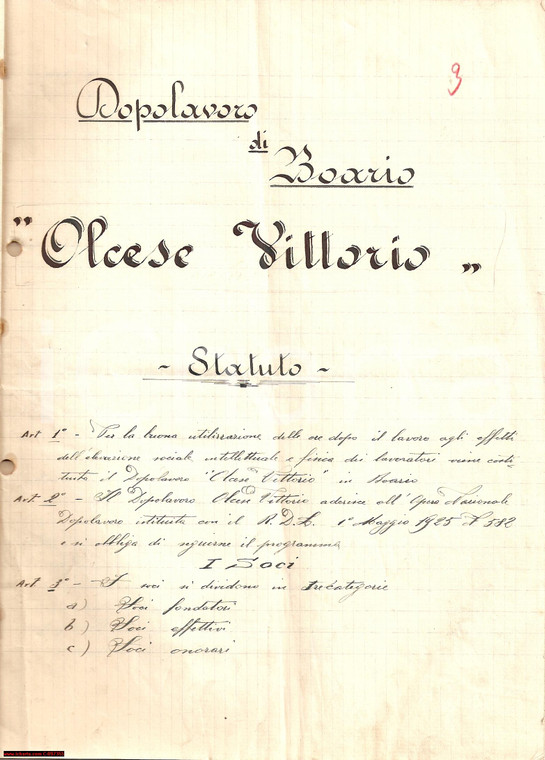 9
Dopolavoro
di
Boario
"Olcese Vittorio"
- Statuto -
Art 1° - Per la buona utilizzazione delle ore dopo il lavoro agli effetti
dell'elevazione sociale, intellettuale e fisica dei lavoratori viene costi-
tuito il Dopolavoro "Olcese Vittorio" in Boario
Art 2° - Il Dopolavoro Olcese Vittorio aderisce all'Opera Nazionale
Dopolavoro istituita con il R.D.L. 1° Maggio 1925 N° 582
e si obbliga di seguirne il programma
I Soci
Art 3° - I soci si dividono in tre categorie
a) Soci fondatori
b) Soci effettivi
c) Soci onorari